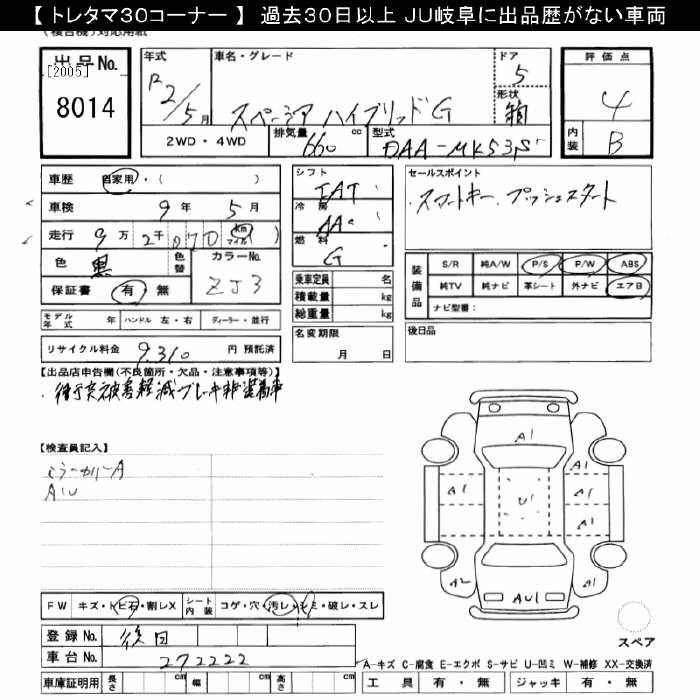 【 トレタマ30コーナー 】 過去30日以上 JU岐阜に出品歴がない車両
(複合機)対応用紙
出品No. [2005] 8014
年式 R2/5月
車名・グレード スペーシア ハイブリッドG
ドア 5
形状 箱
2WD・4WD
排気量 660 cc
型式 DAA-MK53S
評価点 4
内装 B
車歴 自家用・( )
車検 9年 5月
走行 9万 2千 070 km マイル ( )
色 黒 色替 カラーNo. ZJ3
保証書 有・無
モデル年式 年 ハンドル 左・右 ディーラー・並行
リサイクル料金 9,310 円 預託済
シフト IAT
冷房 AAC
燃料 G
乗車定員 名
積載量 kg
総重量 kg
名変期限 月 日
セールスポイント
・スマートキー、プッシュスタート
装備品 S/R 純A/W P/S P/W ABS
純TV 純ナビ 革シート 外ナビ エアB
ナビ型番:
後日品
【出品店申告欄(不良箇所・欠品・注意事項等)】
・衝突被害軽減ブレーキ非装着車
【検査員記入】
ミラーカバーA
AU
A1
A1
A1
A1
A1
A1
U1
A2
A1
AU1
スペア
FW キズ・トビ石・割レX シート内装 コゲ・穴・汚レ・シミ・破レ・スレ
登録No. 後日
車台No. 272222
車庫証明用 長さ cm 幅 cm 高さ cm
A-キズ C-腐食 E-エクボ S-サビ U-凹ミ W-補修 XX-交換済
工具 有・無 ジャッキ 有・無